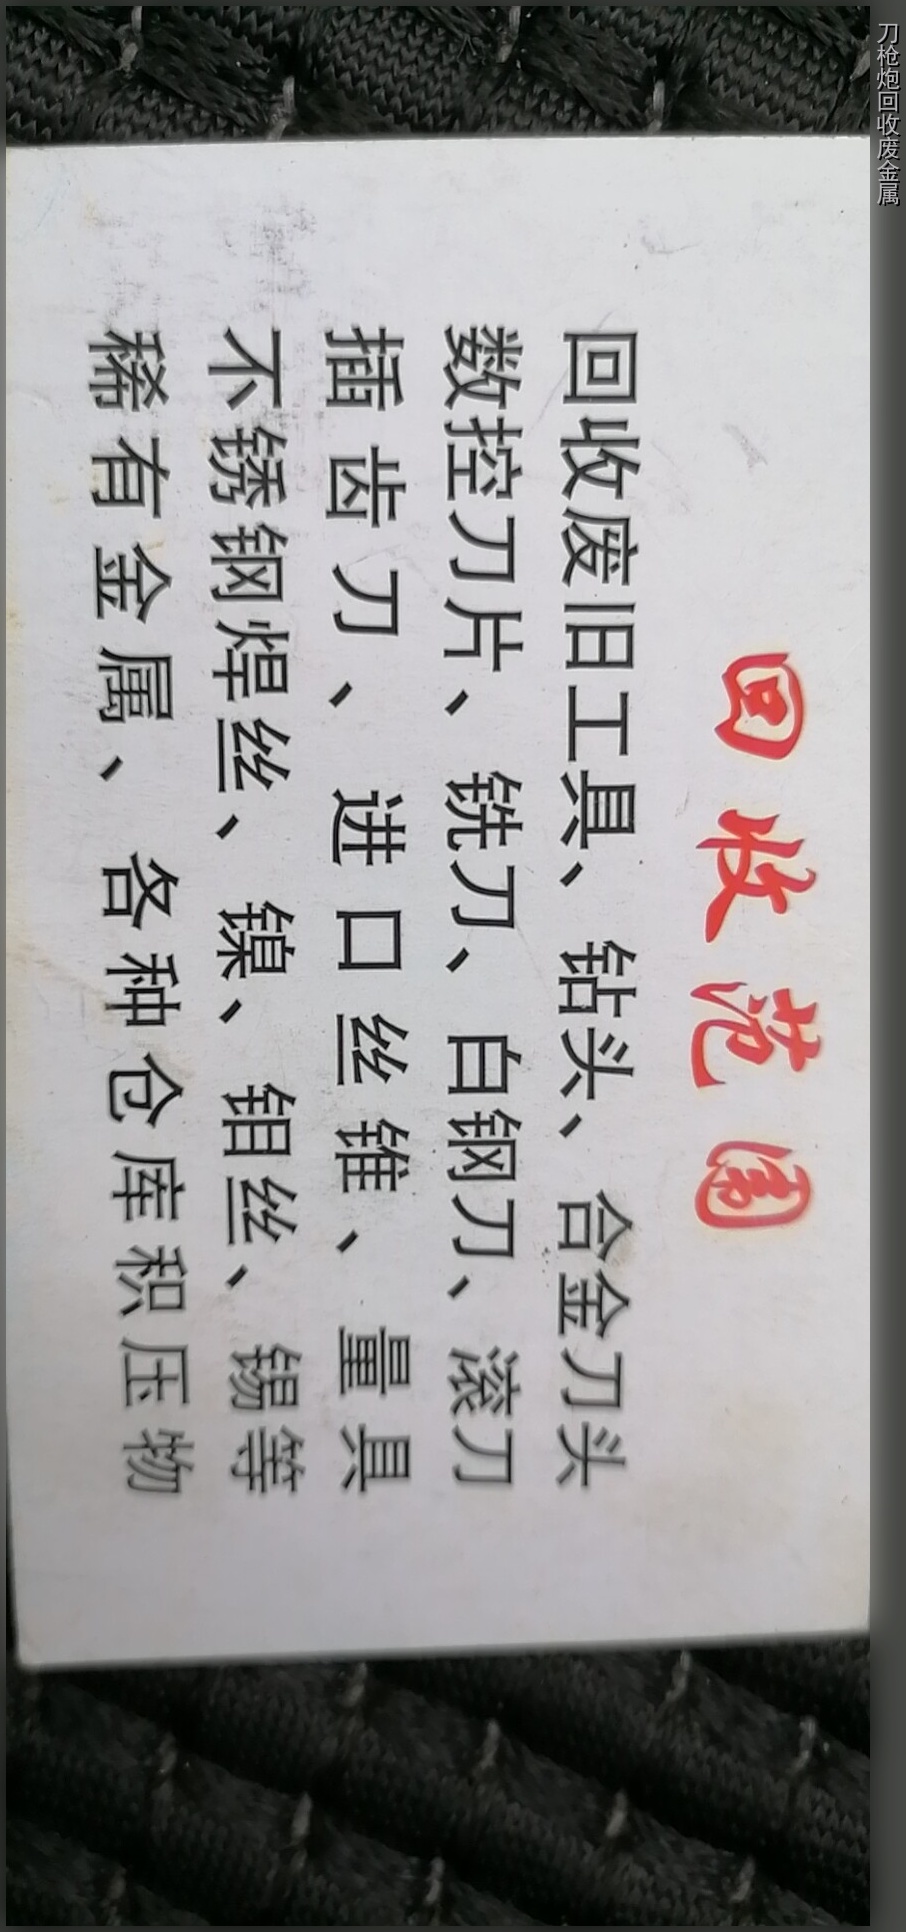 回收范围
回收废旧工具、钻头、合金刀头
数控刀片、铣刀、白钢刀、滚刀
插齿刀、进口丝锥、量具
不锈钢焊丝、镍、钼丝、锡等
稀有金属、各种仓库积压物
刀枪炮回收废金属